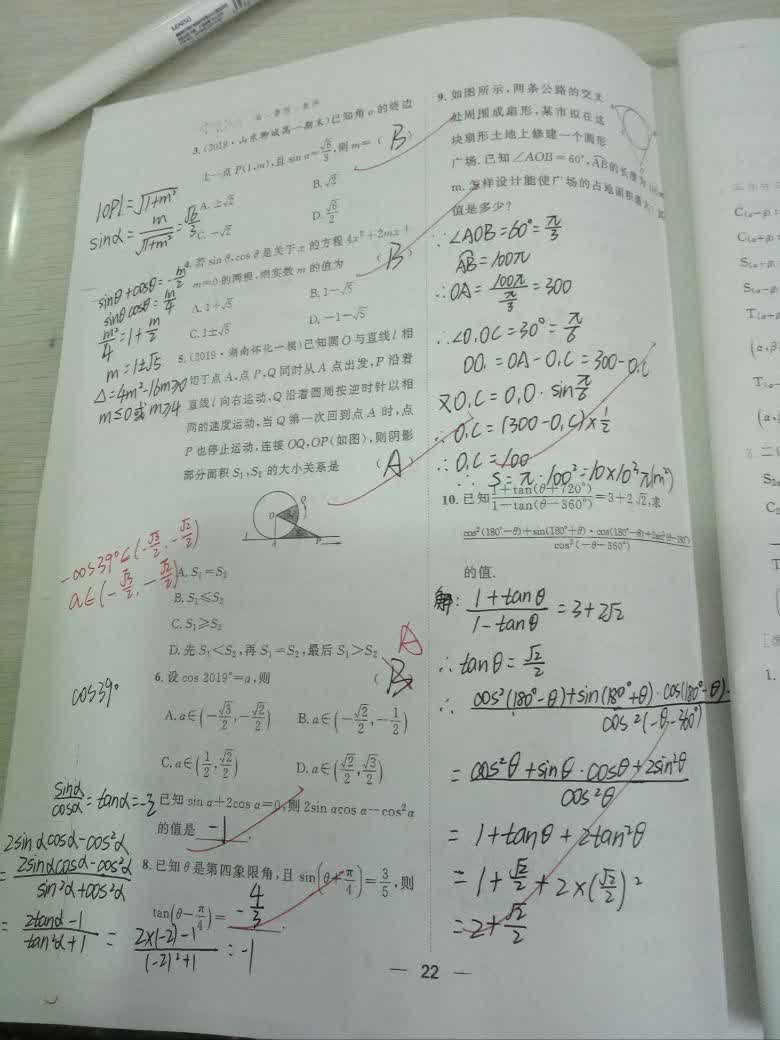 MINISO
3.(2019·山东聊城高一期末)已知角α的终边
上一点P(1,m),且sin α=√6/3,则m=( B )
A.±√2 B.√2
C.-√2 D.√6/2
|OP|=√1+m²
sinα=m/√1+m²=√6/3
4.若sin θ,cos θ是关于x的方程4x²+2mx+
m=0的两根,则实数m的值为 ( B )
A.1+√5 B.1-√5
C.1±√5 D.-1-√5
sinθ+cosθ=-m/2
sinθcosθ=m/4
m²/4=1+m/2
m=1±√5
Δ=4m²-16m≥0
m≤0或m≥4
5.(2019·湖南怀化一模)已知圆O与直线l相
切于点A,点P,Q同时从A点出发,P沿着
直线l向右运动,Q沿着圆周按逆时针以相
同的速度运动,当Q第一次回到点A时,点
P也停止运动,连接OQ,OP(如图),则阴影
部分面积S₁,S₂的大小关系是 ( A )
A.S₁=S₂
B.S₁≤S₂
C.S₁≥S₂
D.先S₁<S₂,再S₁=S₂,最后S₁>S₂
-cos39°∈(-√3/2,-√2/2)
a∈(-√3/2,-√2/2)
A
6.设cos 2019°=a,则 ( B
A.a∈(-√3/2,-√2/2) B.a∈(-√2/2,-1/2)
C.a∈(1/2,√2/2) D.a∈(√2/2,√3/2)
cos39°
已知sin α+2cos α=0,则2sin αcos α-cos²α
的值是 -1 .
sinα/cosα=tanα=-2
2sinαcosα-cos²α
=2sinαcosα-cos²α/sin²α+cos²α
=2tanα-1/tan²α+1=2×(-2)-1/(-2)²+1=-1
8.已知θ是第四象限角,且sin(θ+π/4)=3/5,则
tan(θ-π/4)= -4/3 .
9.如图所示,两条公路的交叉
处周围成扇形,某市拟在这
块扇形土地上修建一个圆形
广场.已知∠AOB=60°,AB的长度为
m.怎样设计能使广场的占地面积最大?其
值是多少?
∵∠AOB=60°=π/3
AB=100π
∴OA=100π/π/3=300
∴∠O₁OC=30°=π/6
OO₁=OA-O₁C=300-O₁C
又O₁C=O₁O·sinπ/6
∴O₁C=(300-O₁C)×1/2
∴O₁C=100
∴S=π·100²=10×10³π(m²)
10.已知1+tan(θ+720°)/1-tan(θ-360°)=3+2√2,求
cos²(180°-θ)+sin(180°+θ)·cos(180°-θ)+2sin²(θ-180°)/cos²(-θ-360°)
的值.
解:1+tanθ/1-tanθ=3+2√2
∴tanθ=√2/2
∴cos²(180°-θ)+sin(180°+θ)·cos(180°-θ)·/cos²(-θ-360°)
=cos²θ+sinθ·cosθ+2sin²θ/cos²θ
=1+tanθ+2tan²θ
=1+√2/2+2×(√2/2)²
=2+√2/2
— 22 —